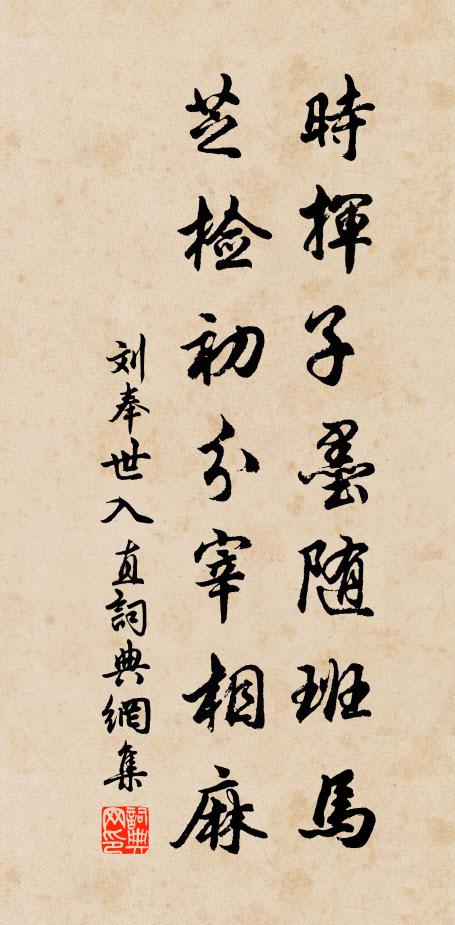 時揮子墨随班馬
芝檢初分宰相麻
刘奉世入直詞典網集
詞典网印